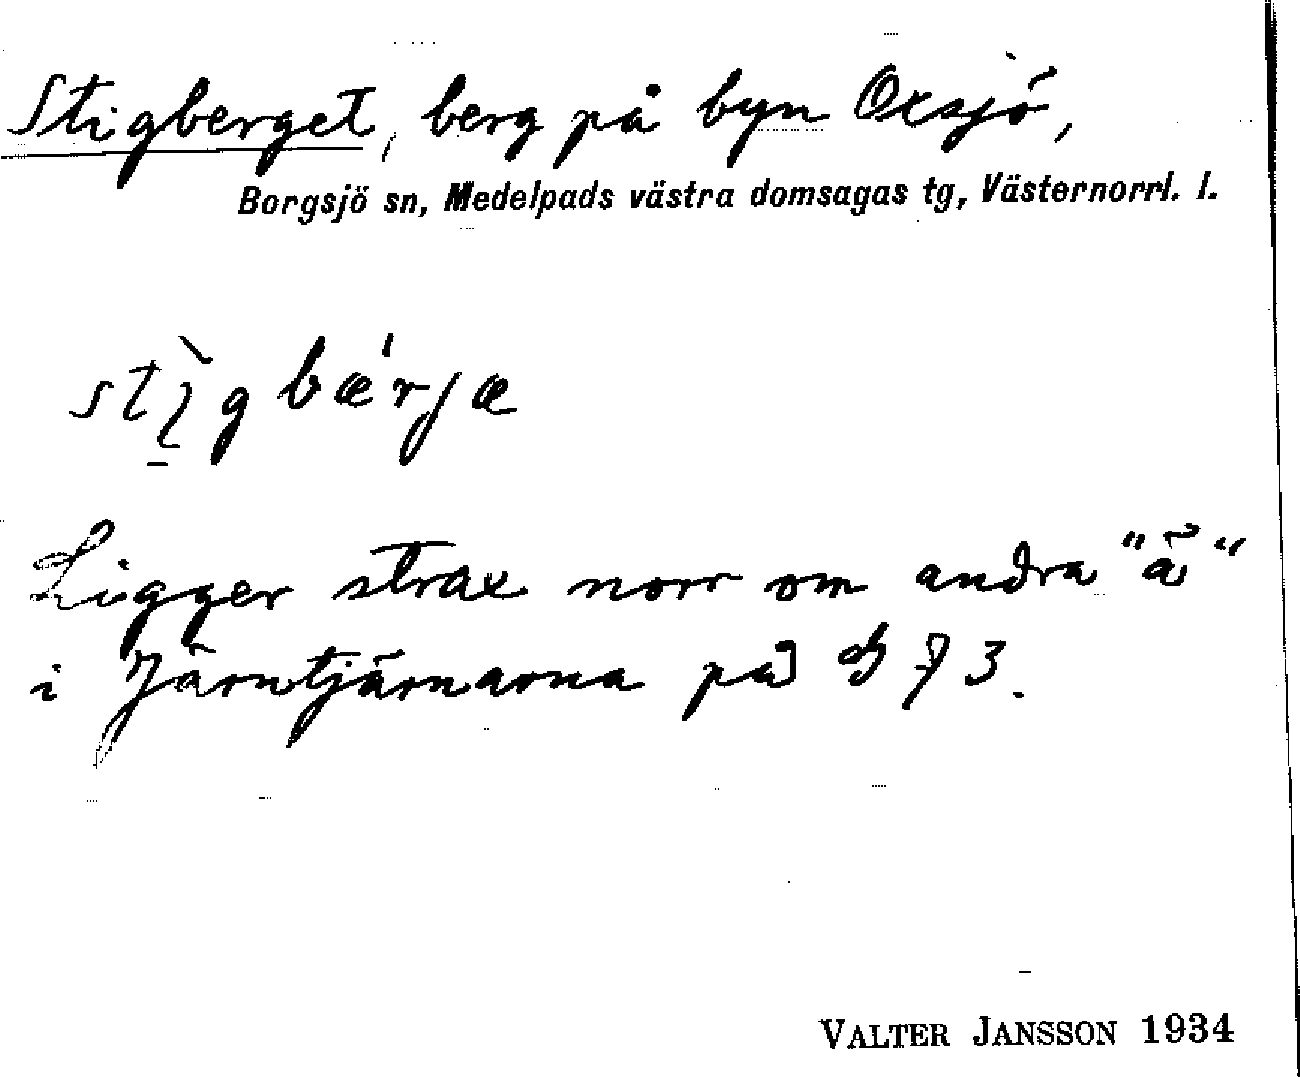 Stigberget, berg på byn Oxsjö,
Borgsjö sn, Medelpads västra domsagas tg, Västernorrl. l.
stìgbæ'rjæ
Ligger strax norr om andra "ä"
i Järntjärnarna på 73.
VALTER JANSSON 1934